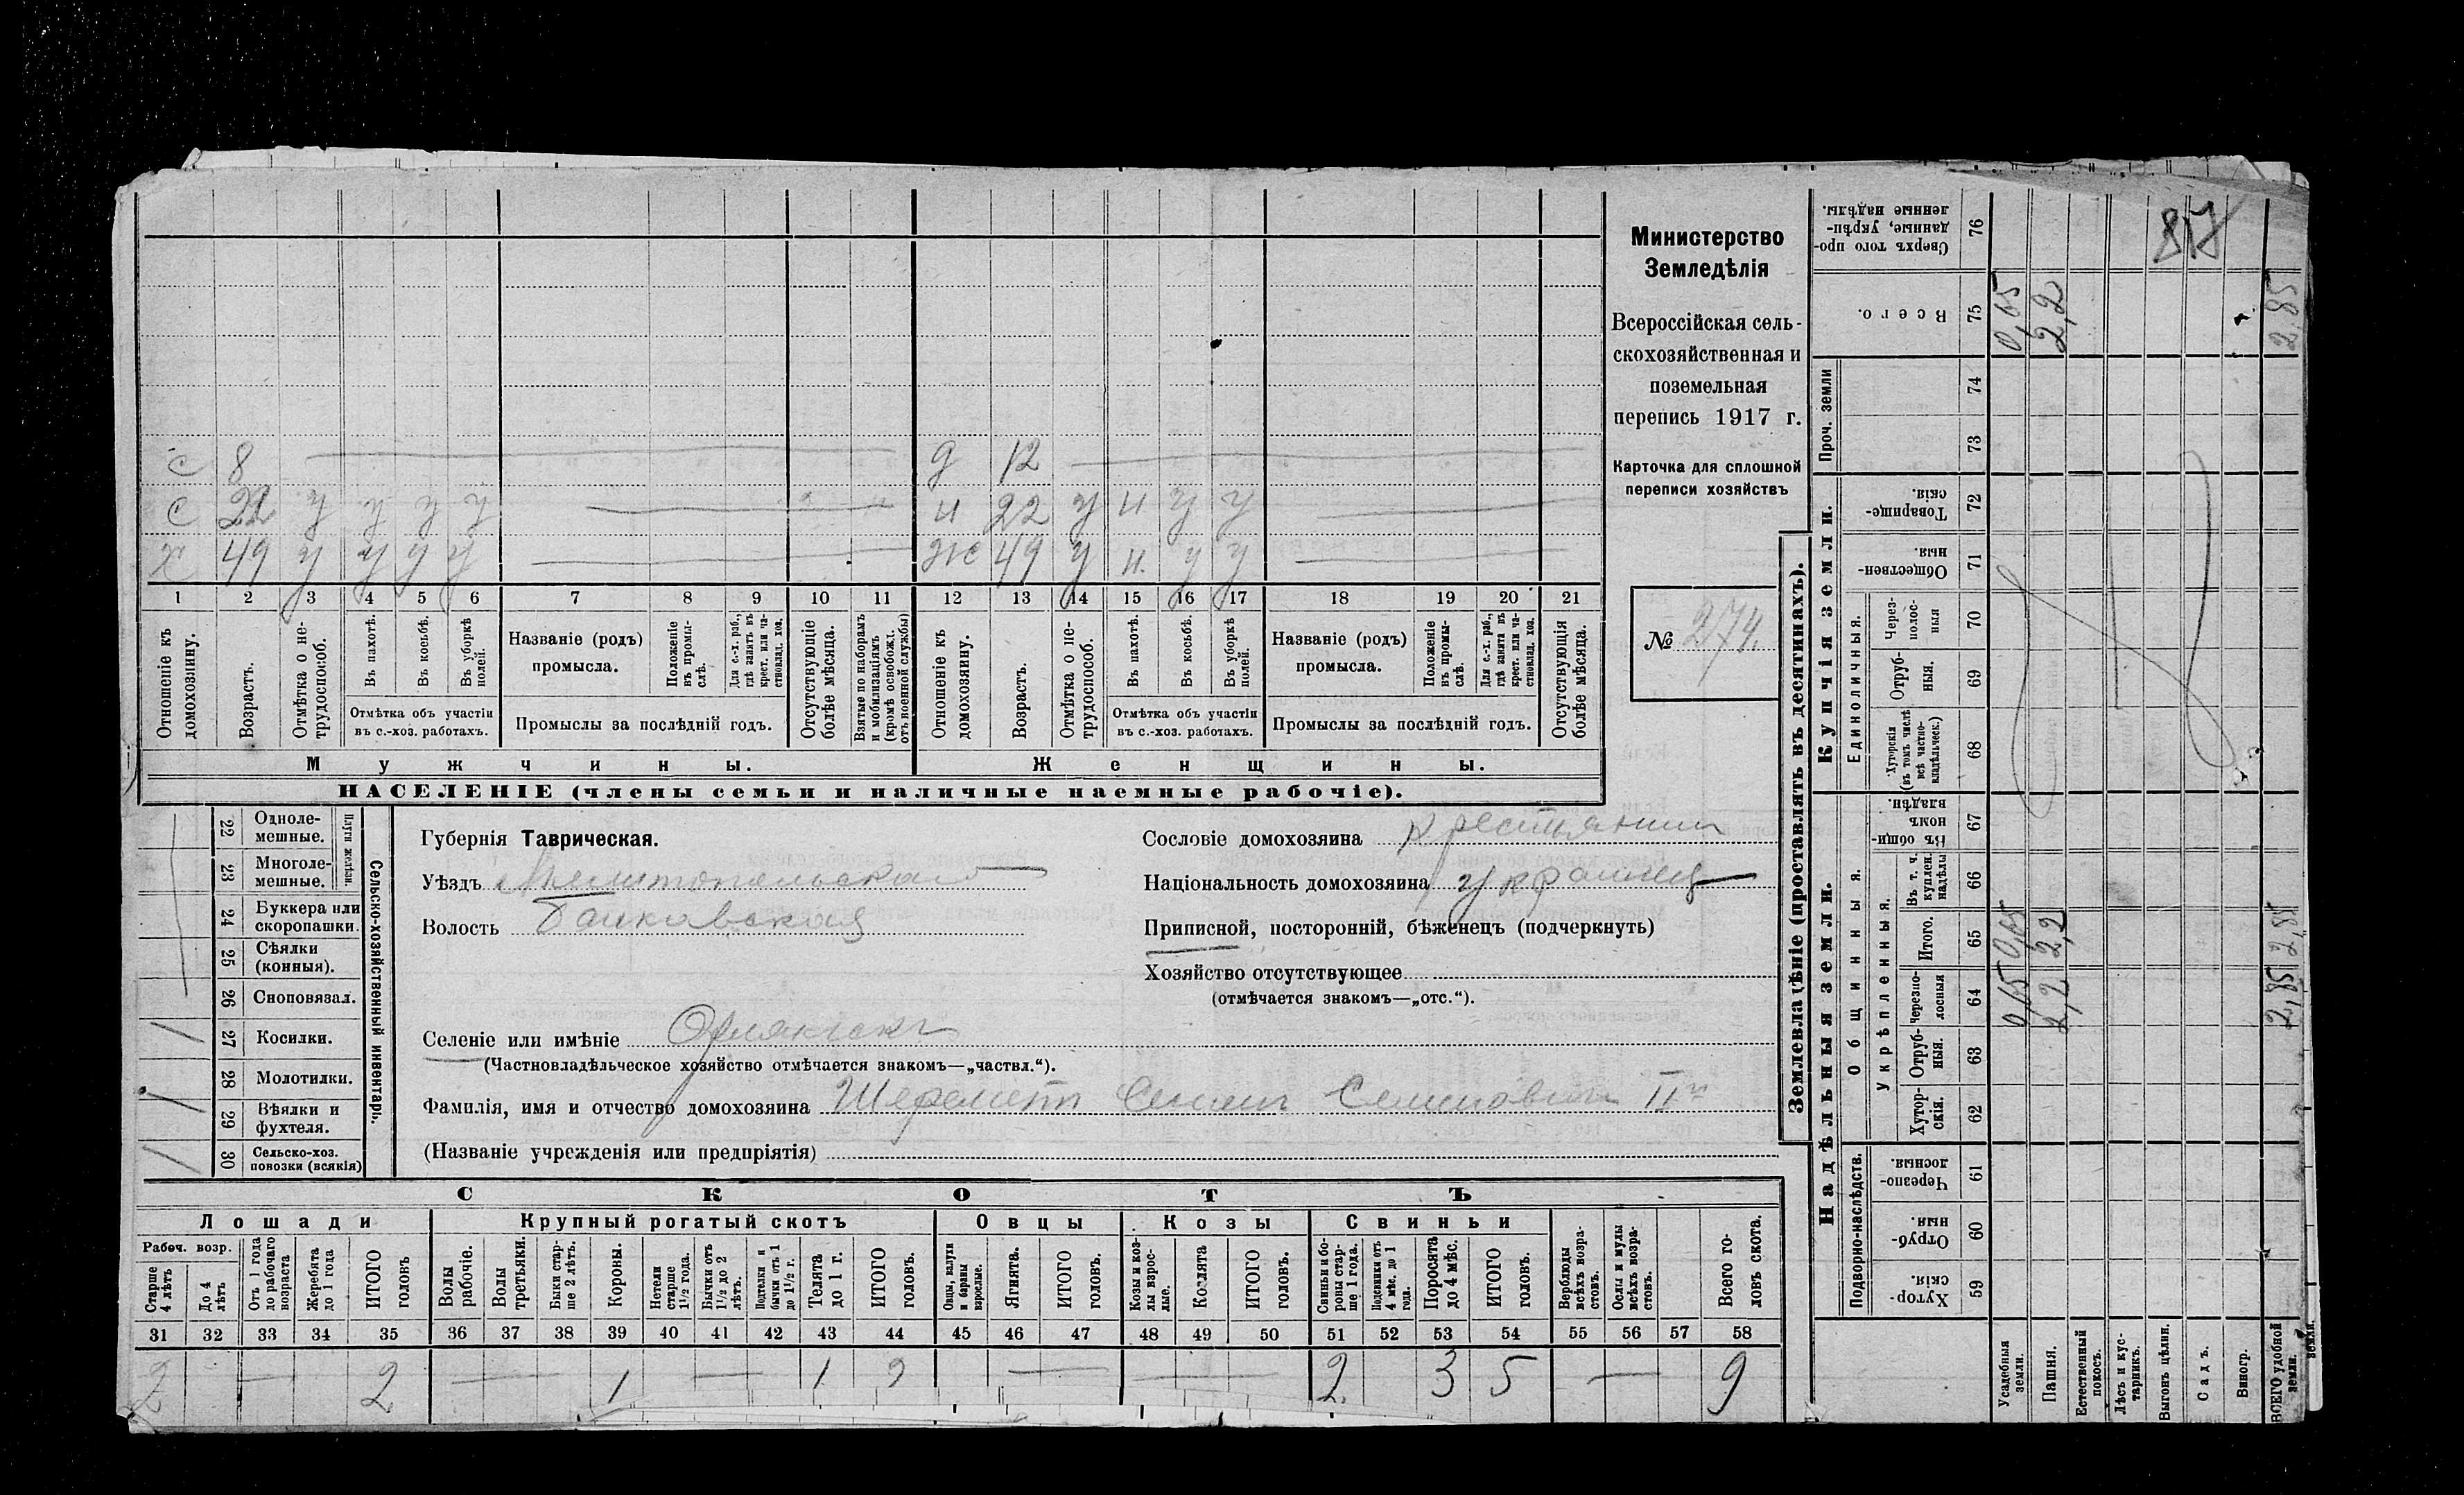 с 8 д 12
с 22 у у у у н 22 у н у у
х 49 у у у у ж 49 у н. у у
1 2 3 4 5 6 7 8 9 10 11 12 13 14 15 16 17 18 19 20 21
Отношеніе къ домохозяину.
Возрастъ.
Отмѣтка о не-
трудоспособ.
Въ пахотѣ.
Въ косьбѣ.
Въ уборкѣ
полей.
Отмѣтка объ участіи
въ с.-хоз. работахъ.
Названіе (родъ)
промысла.
Положеніе
въ промы-
слѣ.
Для с.-х. раб.,
гдѣ занятъ въ
крест. или ча-
стновлад. хоз.
Промыслы за послѣдній годъ.
Отсутствующіе
болѣе мѣсяца.
Взятые по наборамъ
и мобилизаціямъ
(кромѣ освобожд.
отъ военной службы)
Отношеніе къ
домохозяину.
Возрастъ.
Отмѣтка о не-
трудоспособ.
Въ пахотѣ.
Въ косьбѣ.
Въ уборкѣ
полей.
Отмѣтка объ участіи
въ с.-хоз. работахъ.
Названіе (родъ)
промысла.
Положеніе
въ промы-
слѣ.
Для с.-х. раб.,
гдѣ занятъ въ
крест. или ча-
стновлад. хоз.
Промыслы за послѣдній годъ.
Отсутствующія
болѣе мѣсяца.
Мужчины. Женщины.
НАСЕЛЕНІЕ (члены семьи и наличные наемные рабочіе).
Министерство
Земледѣлія
Всероссійская сель-
скохозяйственная и
поземельная
перепись 1917 г.
Карточка для сплошной
переписи хозяйствъ
№ 274.
22 Одноле-
мешные.
23 Многоле-
мешные.
Плуги желѣзн.
24 Буккера или
скоропашки.
25 Сѣялки
(конныя).
26 Сноповязал.
27 Косилки. 1
28 Молотилки.
29 Вѣялки и
фухтеля. 1
30 Сельско-хоз.
повозки (всякія) 1
Сельско-хозяйственный инвентарь.
Губернія Таврическая.
Уѣздъ Мелитопольскаго
Волость
Селеніе или имѣніе
(Частновладѣльческое хозяйство отмѣчается знакомъ—„частвл.“).
Фамилія, имя и отчество домохозяина Шереметъ Семенъ Семеновичъ IIй
(Названіе учрежденія или предпріятія)
Сословіе домохозяина крестьянинъ
Національность домохозяина украинец
Приписной, посторонній, бѣженецъ (подчеркнуть)
Хозяйство отсутствующее
(отмѣчается знакомъ—„отс.“).
СКОТЪ
Лошади Крупный рогатый скотъ Овцы Козы Свиньи
Рабоч. возр.
Старше
4 лѣтъ
До 4
лѣтъ
Отъ 1 года
до рабочаго
возраста
Жеребята
до 1 года
ИТОГО
головъ
Волы
рабочіе.
Волы
третьяки.
Быки стар-
ше 2 лѣтъ.
Коровы.
Нетели
старше
1½ года.
Бычки отъ
1½ до 2
лѣтъ.
Подтелки и
бычки отъ 1
до 1½ г.
Телята
до 1 г.
ИТОГО
головъ.
Овцы, валухи
и бараны
взрослые.
Ягнята.
ИТОГО
головъ.
Козы и коз-
лы взрос-
лые.
Козлята
ИТОГО
головъ.
Свиньи и бо-
ровы стар-
ше 1 года.
Подсвинки отъ
4 мѣс. до 1
года.
Поросята
до 4 мѣс.
ИТОГО
головъ.
Верблюды
всѣхъ возра-
стовъ.
Ослы и мулы
всѣхъ возра-
стовъ.
Всего го-
ловъ скота.
31 32 33 34 35 36 37 38 39 40 41 42 43 44 45 46 47 48 49 50 51 52 53 54 55 56 57 58
2 — 2 — 1 — 1 2 — — 2 3 5 — 9
Землевладѣніе (проставлять въ десятинахъ).
Надѣльныя земли. Купчія земли.
Подворно-наслѣдств.
Общинныя.
Укрѣпленныя.
Единоличныя.
Проч. земли
Хутор-
скія. 59
Отруб-
ныя. 60
Черезпо-
лосныя. 61
Хутор-
скія. 62
Отруб-
ныя. 63
Черезпо-
лосныя 64
Итого. 65
Въ т. ч.
куплен.
надѣлы 66
Въ общин-
номъ
владѣн. 67
Хуторскія
(въ томъ числѣ
всѣ частно-
владѣльческ.) 68
Отруб-
ныя. 69
Через-
полос-
ныя 70
Обществен-
ныя. 71
Товарище-
скія. 72
73
74
Всего. 75
Сверхъ того про-
данные, укрѣп-
ленные надѣлы. 76
Усадебныя
земли. 0,65 0,65 0,65
Пашня. 2,2 2,2 2,2
Естественный
покосъ.
Лѣсъ и кус-
тарникъ.
Выгонъ цѣлин.
Садъ.
Виногр.
ВСЕГО удобной
земли. 2,85 2,85 2,85
817